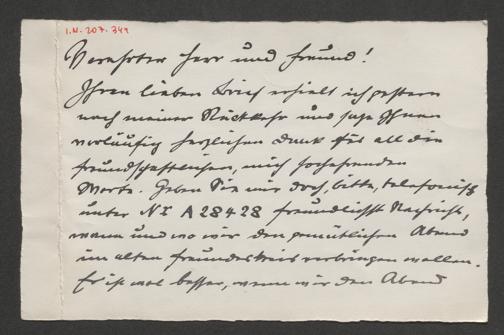 I.N. 207.349
Verehrter Herr und Freund!
Ihren lieben Brief erhielt ich gestern
nach meiner Rückkehr und sage Ihnen
vorläufig herzlichen Dank für all die
freundschaftlichen, mich hochehrenden
Worte. Geben Sie mir doch, bitte, telefonisch
unter Nr A 28428 freundlichst Nachricht,
wann und wo wir den gemütlichen Abend
im alten Freundeskreis verbringen wollen.
Es ist wol besser, wenn wir den Abend